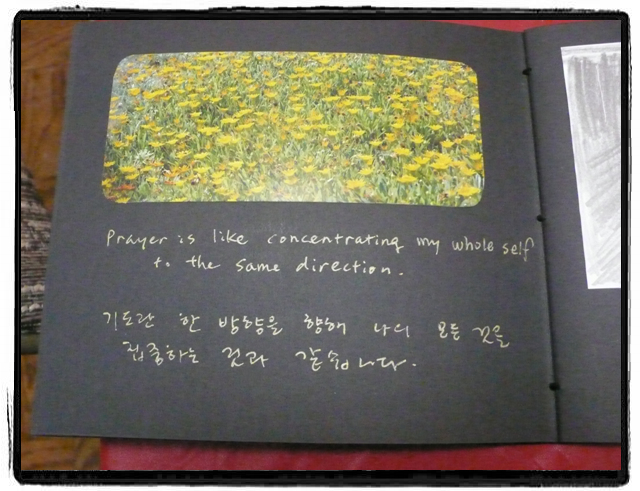 Prayer is like concentrating my whole self
to the same direction.
기도란 한 방향을 향해 나의 모든 것을
집중하는 것과 같습니다.